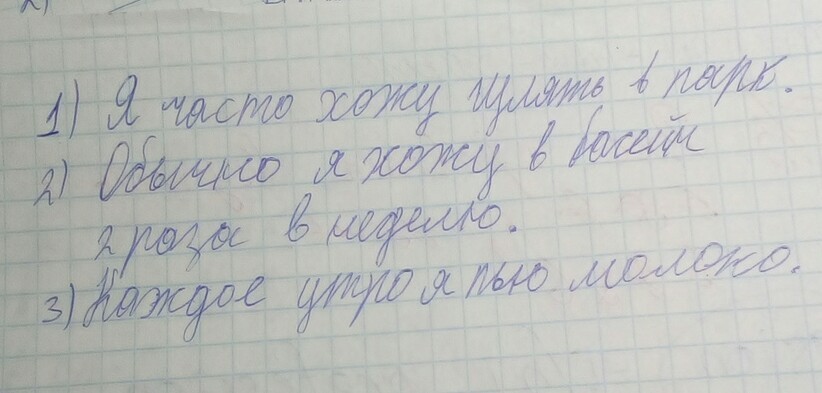 1) Я часто хожу гулять в парк.
2) Обычно я хожу в басейн
2 раза в неделю.
3) Каждое утро я пью молоко.